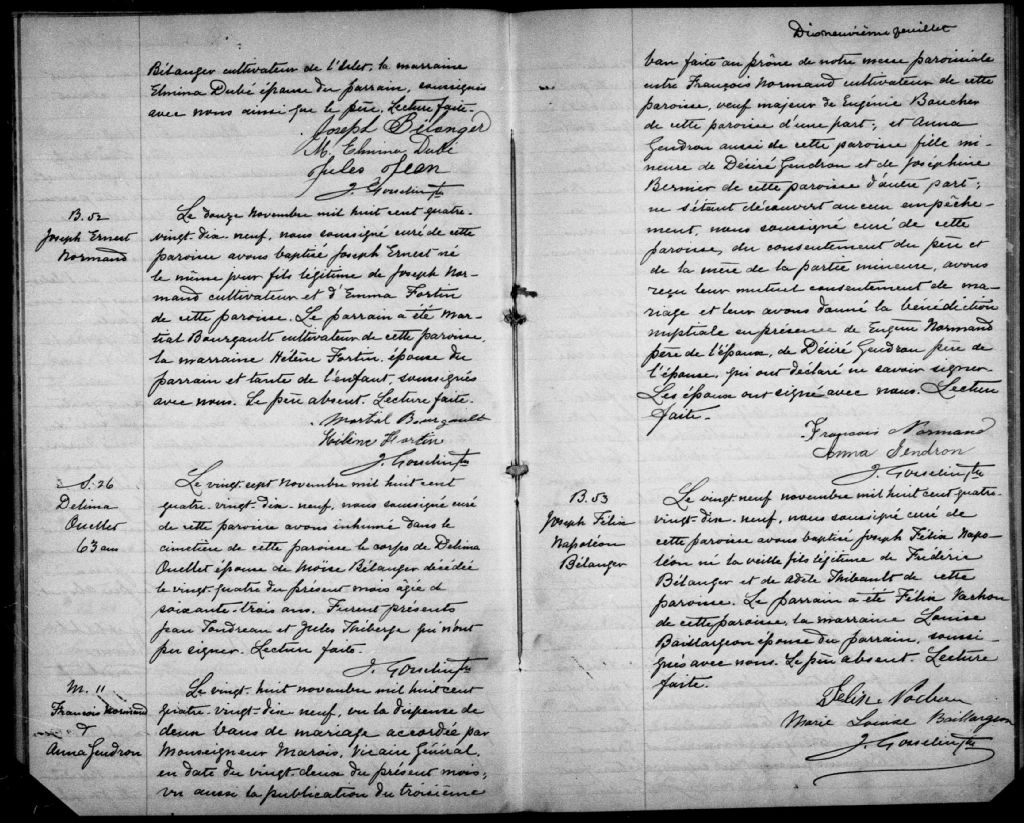 Bélanger cultivateur de l'Islet, la marraine
Elmina Dubé épouse du parrain, soussignés
avec nous ainsi que le père. Lecture faite.
Joseph Bélanger
M. Elmina Dubé
Jules Jean
J. Gosselin Ptre
B. 52
Joseph Ernest
Normand
Le douze novembre mil huit cent quatre-
vingt-dix-neuf, nous soussigné curé de cette
paroisse avons baptisé Joseph Ernest né
le même jour fils légitime de Joseph Nor-
mand cultivateur et d'Emma Fortin
de cette paroisse. Le parrain a été Mar-
tial Bourgault cultivateur de cette paroisse,
la marraine Hélène Fortin, épouse du
parrain et tante de l'enfant, soussignés
avec nous. Le père absent. Lecture faite.
Martial Bourgault
Hélène Fortin
J. Gosselin Ptre
S. 26
Delima
Ouellet
63 ans
Le vingt-sept novembre mil huit cent
quatre-vingt-dix-neuf, nous soussigné curé
de cette paroisse avons inhumé dans le
cimetière de cette paroisse le corps de Delima
Ouellet épouse de Moïse Bélanger décédée
le vingt-quatre du présent mois âgée de
soixante-trois ans. Furent présents
Jean Tondreau et Jules Thiberge qui n'ont
pu signer. Lecture faite.
J. Gosselin Ptre
M. 11
François Normand
&
Anna Gendron
Le vingt-huit novembre mil huit cent
quatre-vingt-dix-neuf, vu la dispense de
deux bans de mariage accordée par
Monseigneur Marois, Vicaire Général,
en date du vingt-deux du présent mois;
vu aussi la publication du troisième
Dix neuvième feuillet
ban faite au prône de notre messe paroissiale
entre François Normand cultivateur de cette
paroisse, veuf majeur de Eugénie Boucher
de cette paroisse d'une part; et Anna
Gendron aussi de cette paroisse fille mi-
neure de Désiré Gendron et de Joséphine
Bernier de cette paroisse d'autre part;
ne s'étant découvert aucun empêche-
ment, nous soussigné curé de cette
paroisse, du consentement du père et
de la mère de la partie mineure, avons
reçu leur mutuel consentement de ma-
riage et leur avons donné la bénédiction
nuptiale en présence de Eugène Normand
père de l'époux, de Désiré Gendron père de
l'épouse, qui ont déclaré ne savoir signer.
Les époux ont signé avec nous. Lecture
faite.
François Normand
Anna Gendron
J. Gosselin Ptre
B. 53
Joseph Félix
Napoléon
Bélanger
Le vingt-neuf novembre mil huit cent quatre-
vingt-dix-neuf, nous soussigné curé de
cette paroisse avons baptisé Joseph Félix Napo-
léon né la veille fils légitime de Frédéric
Bélanger et de Adèle Thibault de cette
paroisse. Le parrain a été Félix Vachon
de cette paroisse, la marraine Louise
Baillargeon épouse du parrain, soussi-
gnés avec nous. Le père absent. Lecture
faite.
Félix Vachon
Marie Louise Baillargeon
J. Gosselin Ptre